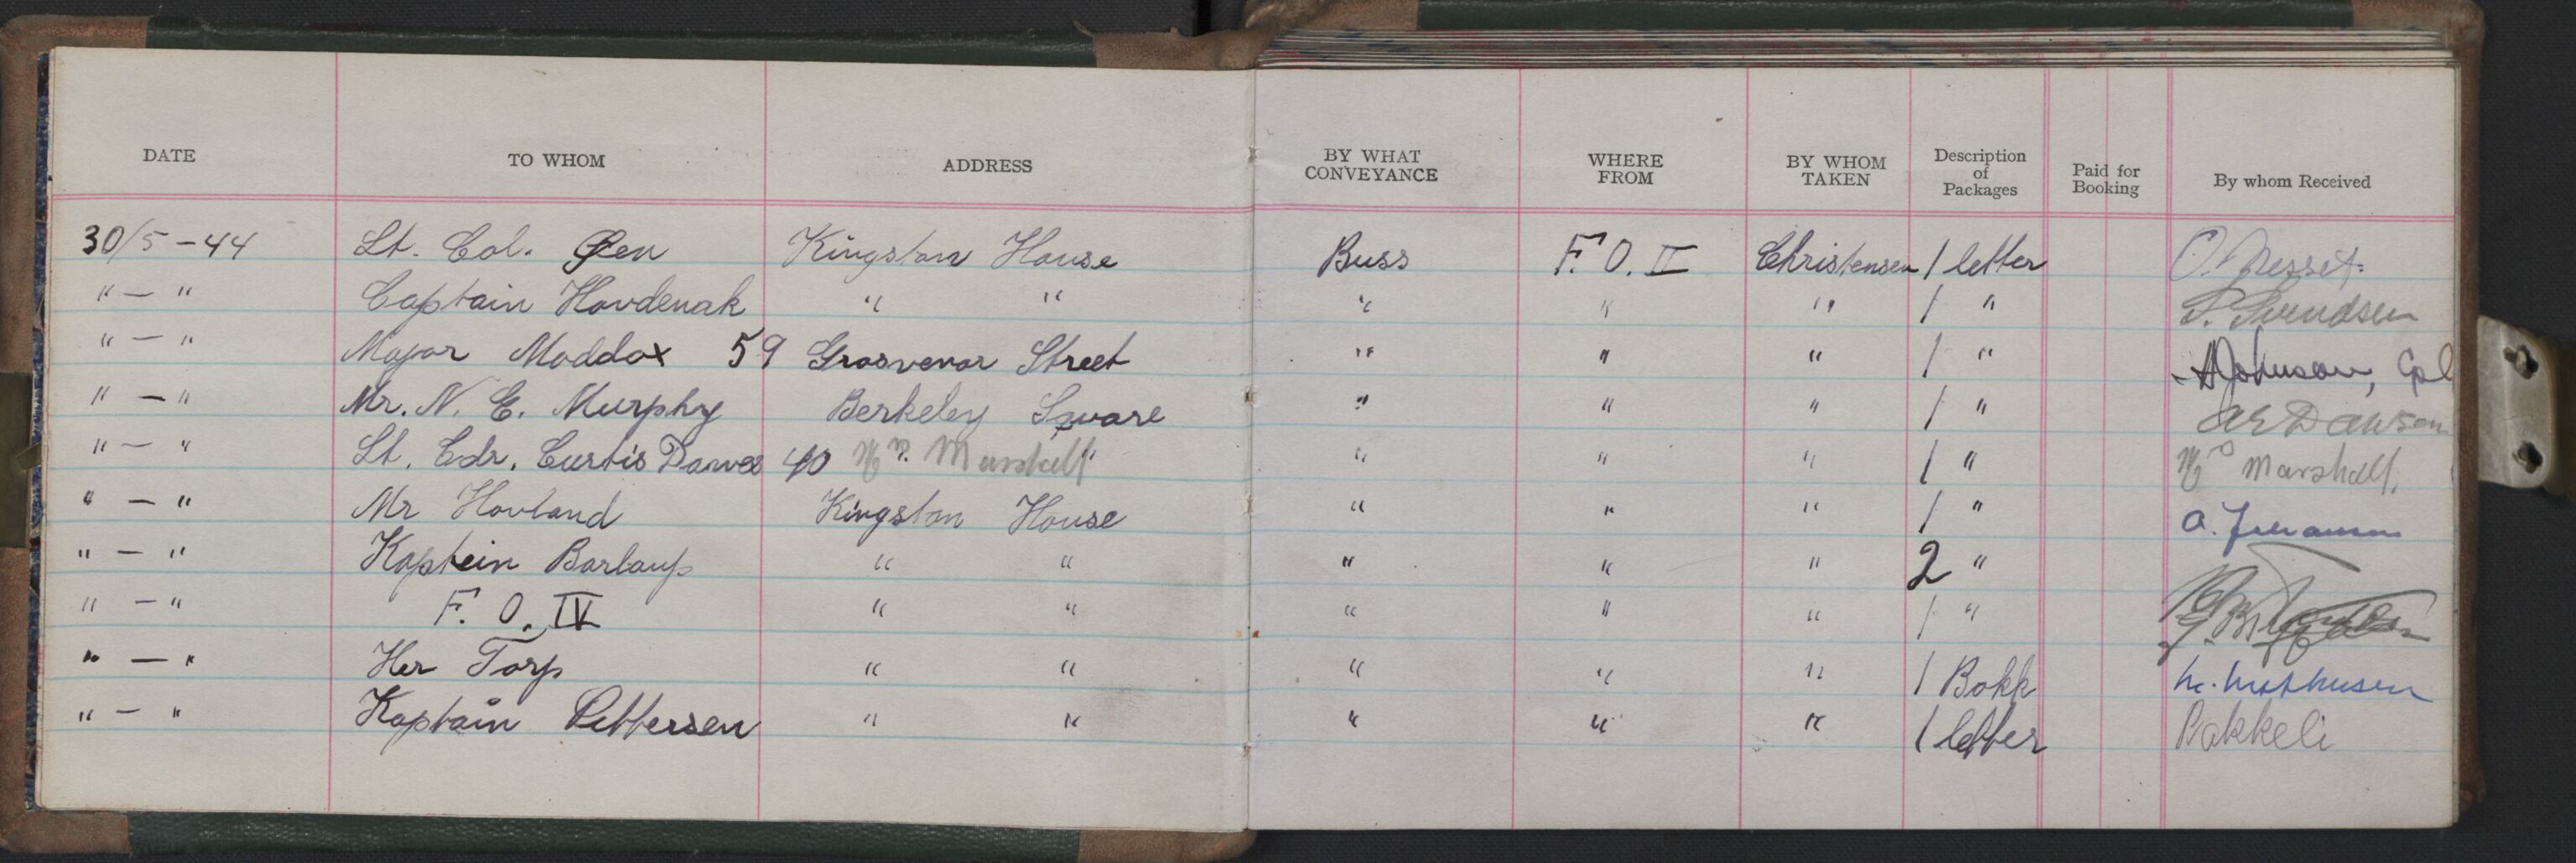 DATE TO WHOM ADDRESS BY WHAT CONVEYANCE WHERE FROM BY WHOM TAKEN Description of Packages Paid for Booking By whom Received
30/5-44 Lt. Col. Øen Kingston House Buss F.O. II Christensen 1 letter
" — " Captain Hovdenak " " " " " 1 " S. Svendsen
" — " Major Maddox 59 Grosvenor Street " " " 1 " Johnson, Cpl
" — " Mr. N. E. Murphy Berkeley Square " " " 1 " AE Dawson
" — " Lt. Cdr. Curtis Dawes 40 " " " 1 " Marshall.
" — " Mr Hovland Kingston House " " " 1 "
" — " Kaptein Barlaup " " " " " 2 "
" — " F. O. IV " " " " " 1 "
" — " Her Torp " " " " " 1 Bokk
" — " Kaptain Pettersen " " " " " 1 letter Bakkeli